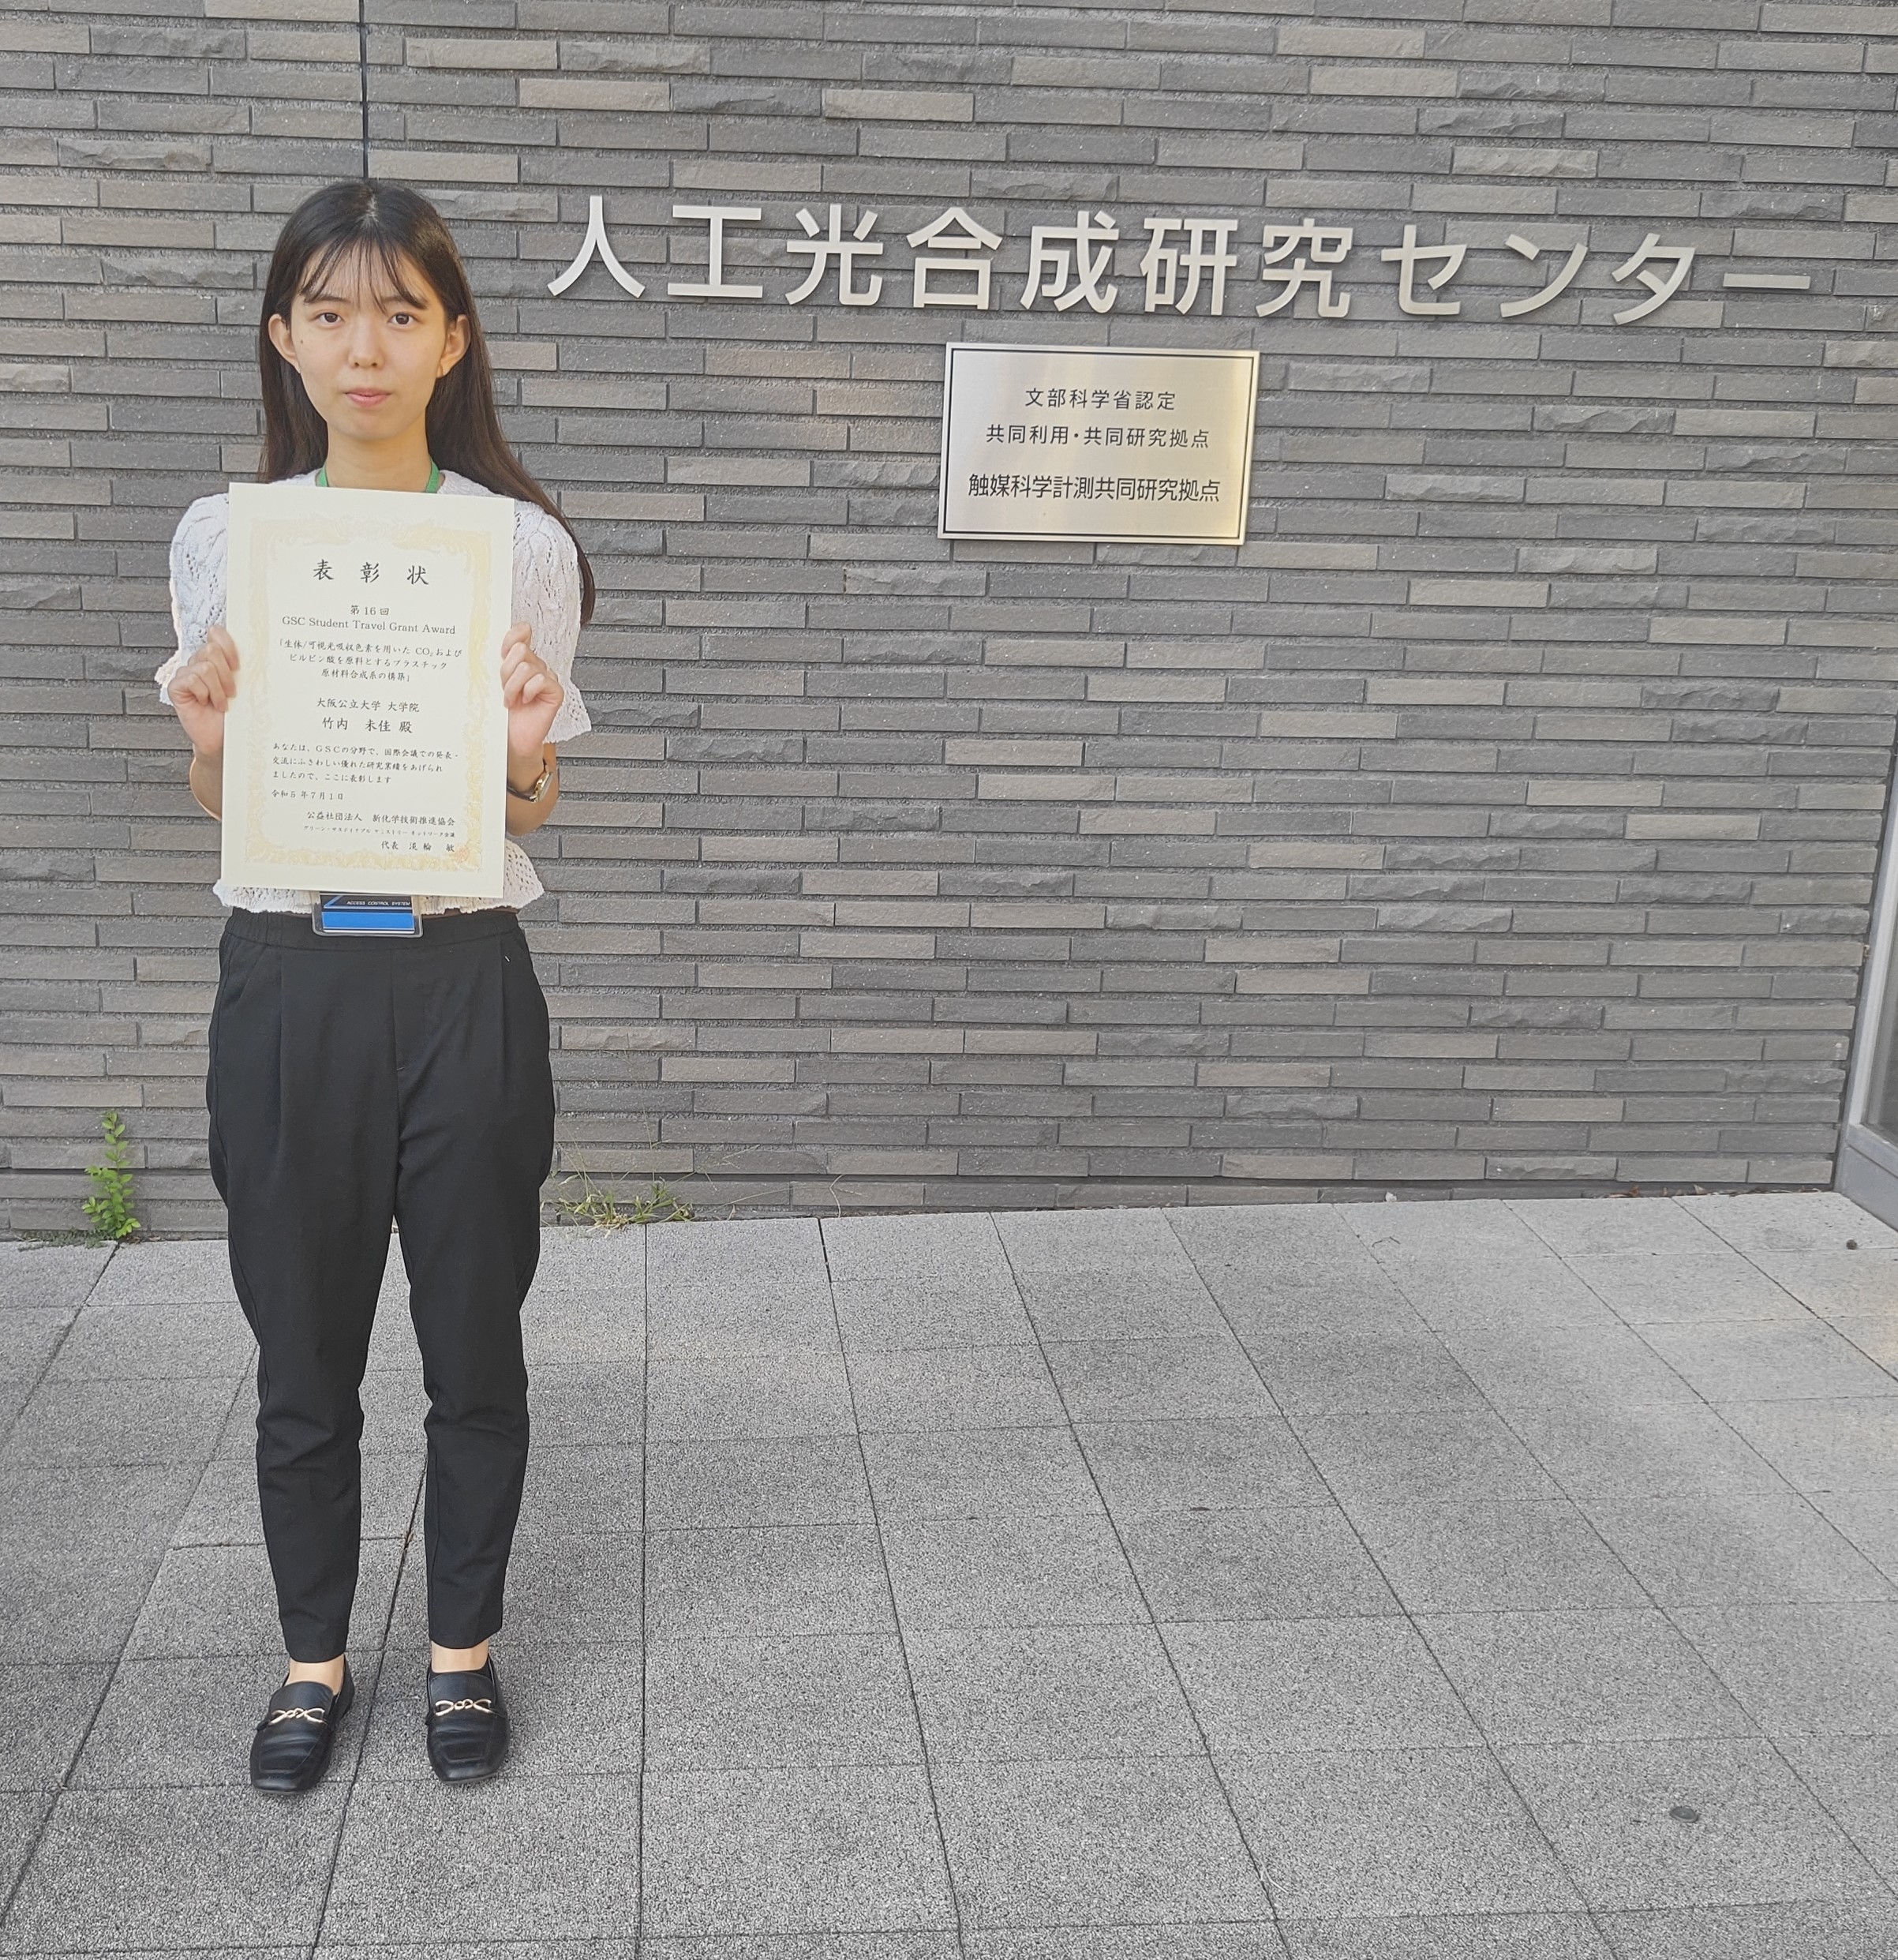 人工光合成研究センター
文部科学省認定
共同利用・共同研究拠点
触媒科学計測共同研究拠点
表彰状
第16回
GSC Student Travel Grant Award
「生体/可視光吸収色素を用いた CO₂および
ピルビン酸を原料とするプラスチック
原材料合成系の構築」
大阪公立大学 大学院
竹内 未佳 殿
あなたは、GSCの分野で、国際会議での発表・
交流にふさわしい優れた研究業績をあげられ
ましたので、ここに表彰します
令和5年7月1日
公益社団法人 新化学技術推進協会
グリーン・サステイナブル ケミストリー ネットワーク会議
代表 淡輪 敏
ACCESS CONTROL SYSTEM